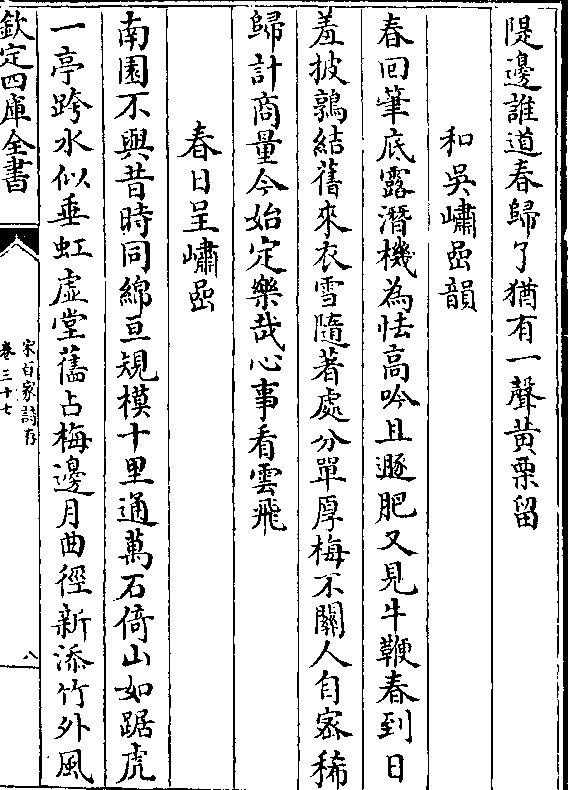 隄邊誰道春歸了猶有一聲黄栗留
和吳嘯嵓韻
春回筆底露潛機為怯高吟且遯肥又見牛鞭春到日
羞披鶉結舊來衣雪隨著處分單厚梅不關人自密稀
歸計商量今始定樂哉心事看雲飛
春日呈嘯嵓
南園不與昔時同綿亘規模十里通萬石倚山如踞虎
一亭跨水似垂虹虛堂舊占梅邊月曲徑新添竹外風
欽定四庫全書
宋百家詩存
卷三十七
八